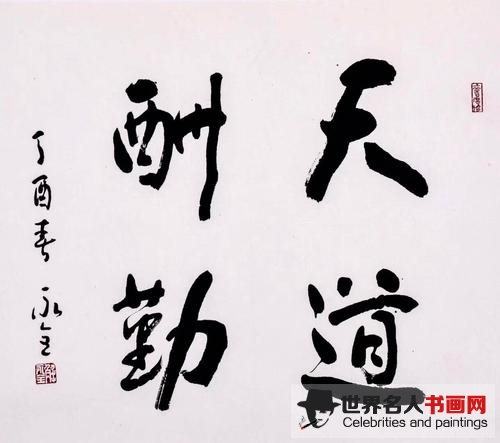 天道
酬勤
丁酉春 永全
世界名人书画网
Celebrities and paintings